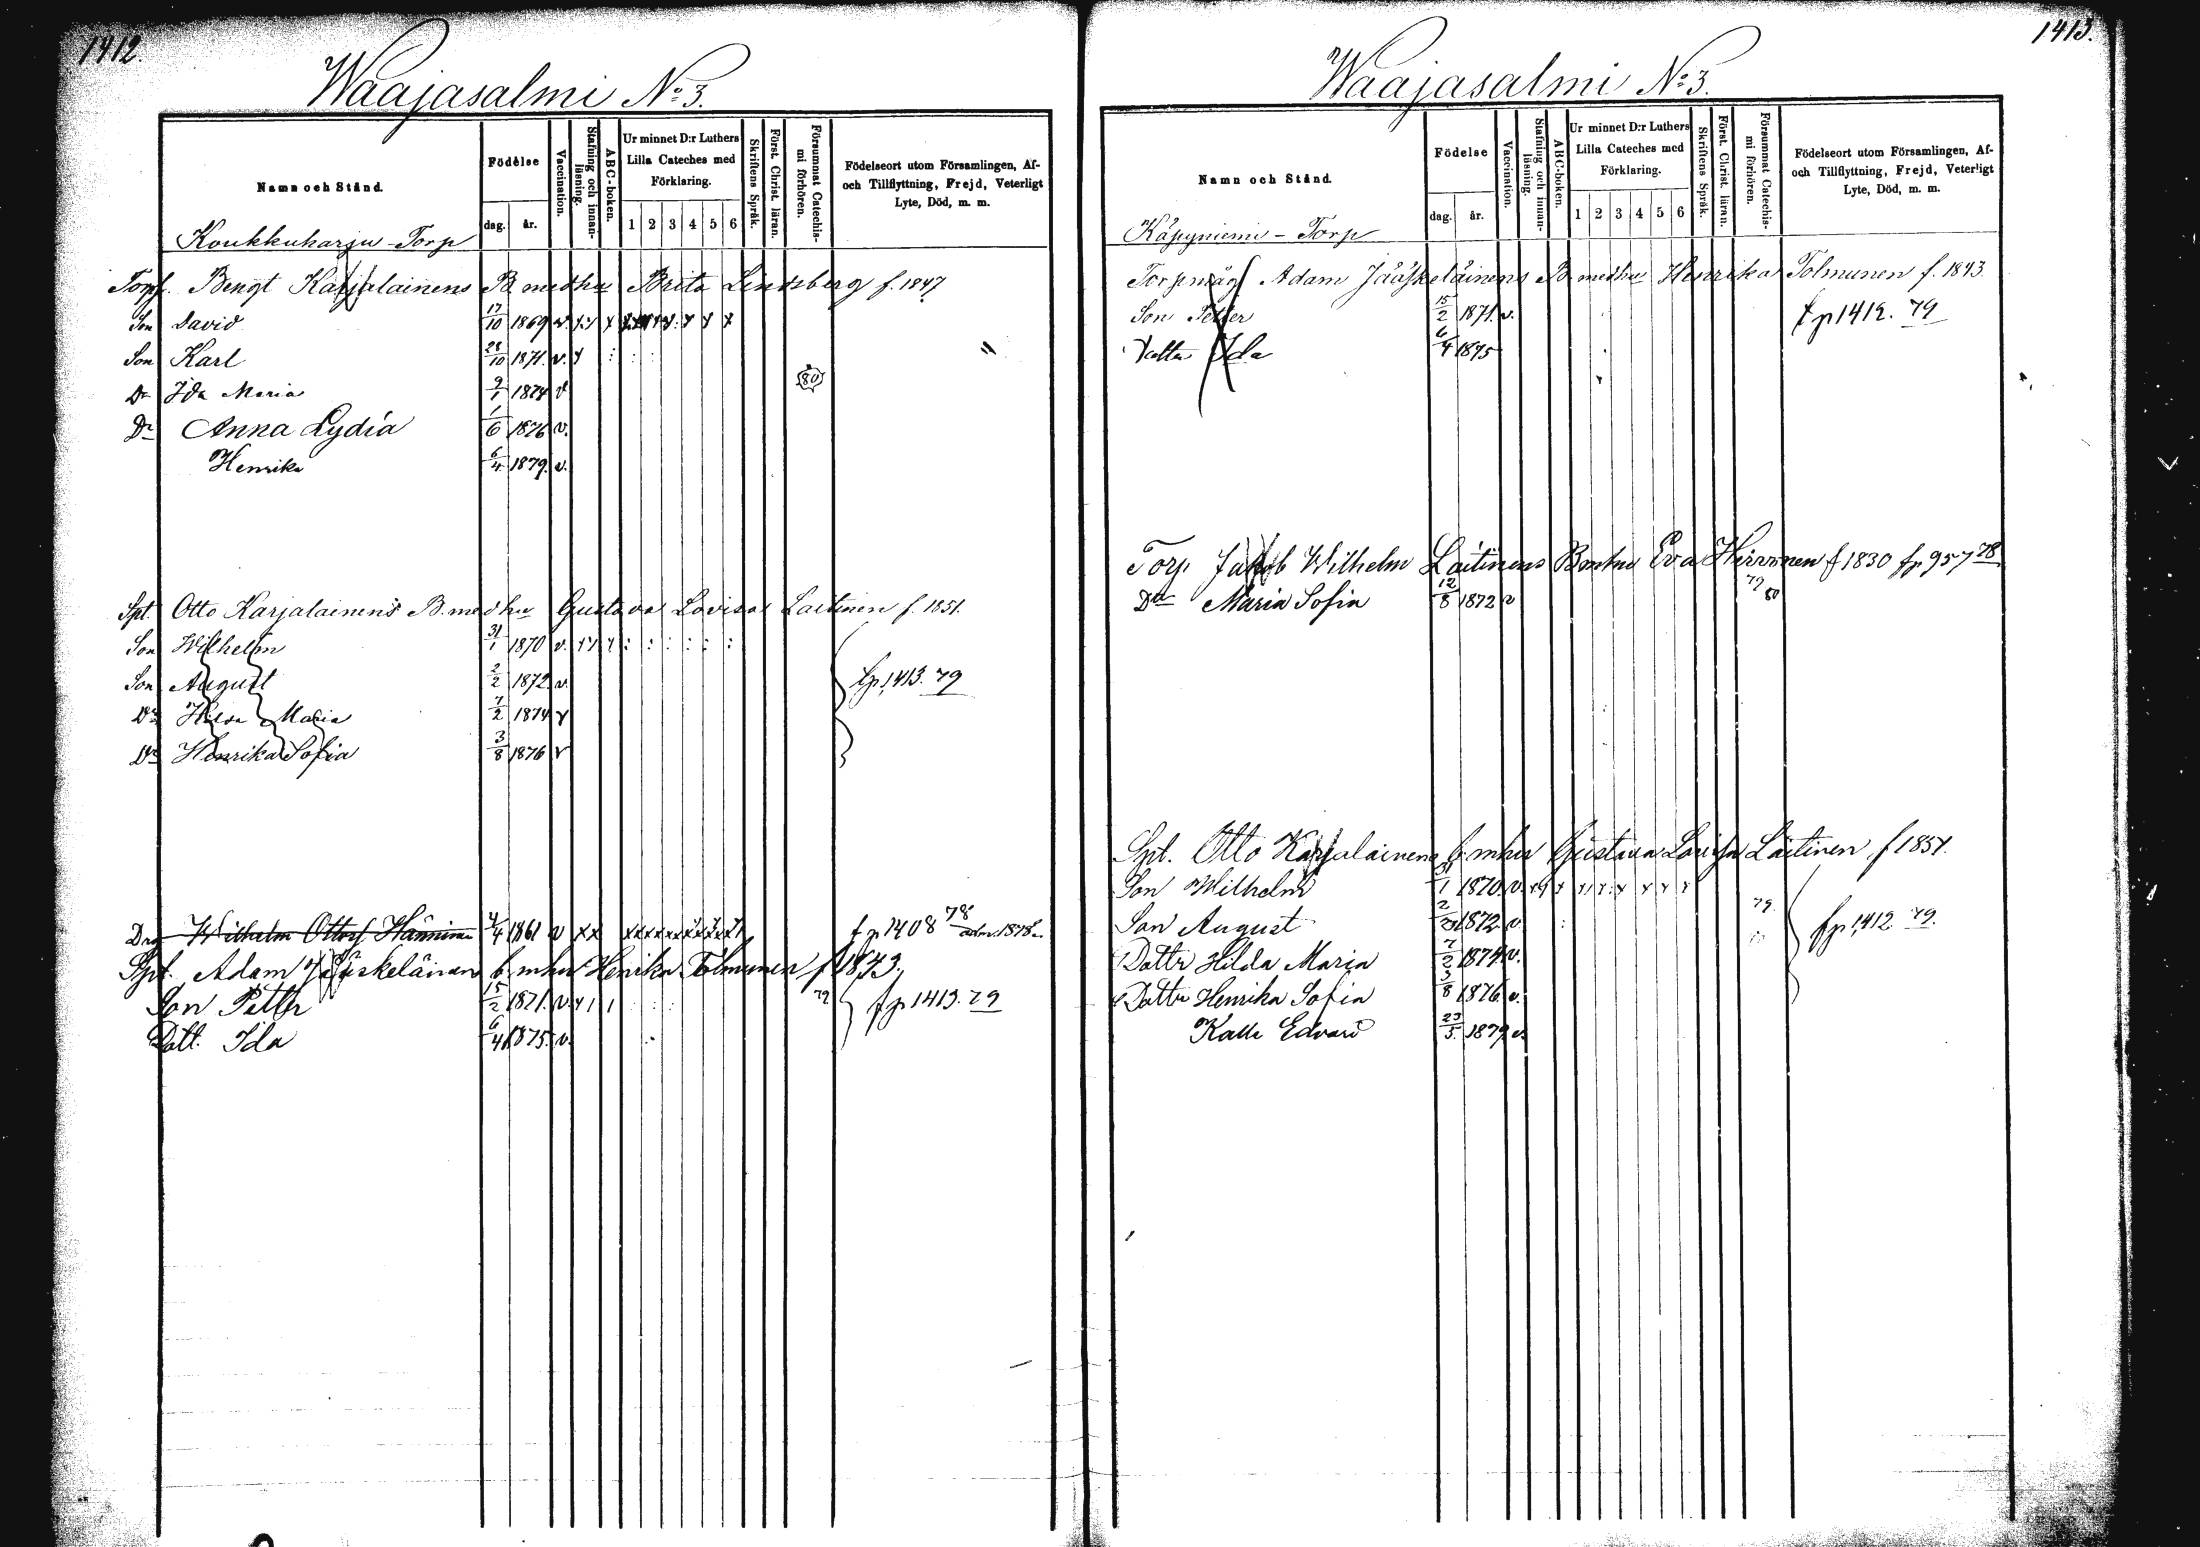 1412.
Waajasalmi No 3.
Namn och Stånd.
Födelse
dag. år.
Vaccination.
Stafning och innan-läsning.
ABC-boken.
Ur minnet D:r Luthers Lilla Cateches med Förklaring.
1 2 3 4 5 6
Skriftens Språk.
Först. Christ. läran.
Försummat Catechis-mi förhören.
Födelseort utom Församlingen, Af- och Tillflyttning, Frejd, Veterligt Lyte, Död, m. m.
Koukkuharju - Torp
Torpf. Bengt Karjalainens B. medhu Brita Lindsberg f. 1847
Son David 17/10 1869 v.
Son Karl 28/10 1871. v. x
Dr Ida Maria 9/1 1874 v
80
Dr Anna Lydia 1/6 1876 v.
Henrika 6/4 1879. v.
Spt. Otto Karjalainens B. medhu Gustava Lovisa Laitinen f. 1851.
Son Wilhelm 31/1 1870 v.
Son August 2/2 1872 v.
fp 1413. 79
Dr Hilda Maria 7/2 1874 v
Dr Henrika Sofia 3/8 1876 v
Drg Wilhelm Ottosf Hänninen 4/4 1861 v xx fp 1408 78 adm. 1878
Spt. Adam Jääskeläinen b mhu Henrika Tolmunen f 1843.
Son Petter 15/2 1871. v. 79 fp 1413. 79
Dott. Ida 6/4 1875. v.
1413.
Waajasalmi No 3.
Namn och Stånd.
Födelse
dag. år.
Vaccination.
Stafning och innan-läsning.
ABC-boken.
Ur minnet D:r Luthers Lilla Cateches med Förklaring.
1 2 3 4 5 6
Skriftens Språk.
Först. Christ. läran.
Försummat Catechis-mi förhören.
Födelseort utom Församlingen, Af- och Tillflyttning, Frejd, Veterligt Lyte, Död, m. m.
Käpyniemi - Torp
Torpmåg Adam Jääskeläinens B medhu Henrika Tolmunen f. 1843.
Son Petter 15/2 1871. v. fp 1412. 79
Dotter Ida 6/4 1875
Torp Jakob Wilhelm Laitinens Bmhu Eva Hirvonen f 1830 fp 957 78
Dtr Maria Sofia 12/8 1872 v 79 80
Spt. Otto Karjalainens b mhu Gustava Lovisa Laitinen f 1851.
Son Wilhelm 31/1 1870. v.
Son August 2/2 1872 v. 79. fp 1412 79.
Dottr Hilda Maria 7/2 1874 v.
Dottr Henrika Sofia 3/8 1876 v.
Kalle Edvard 23/5. 1879 v.